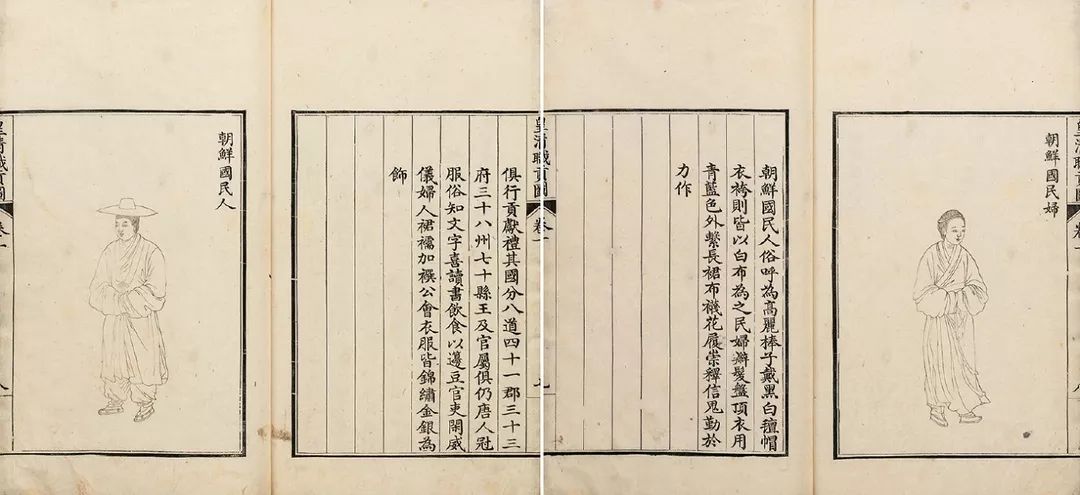 朝鮮國民婦
皇清職貢圖
卷一
朝鮮國民人俗呼為高麗棒子戴黑白氊帽
衣袴則皆以白布為之民婦辮髮盤頂衣用
青藍色外繫長裙布襪花履崇釋信鬼勤於
力作
皇清職貢圖
卷一
九
俱行貢獻禮其國分八道四十一郡三十三
府三十八州七十縣王及官屬俱仍唐人冠
服俗知文字喜讀書飲食以籩豆官吏閑威
儀婦人裙襦加襈公會衣服皆錦繡金銀為
飾
朝鮮國民人
皇清職貢圖
卷一
八